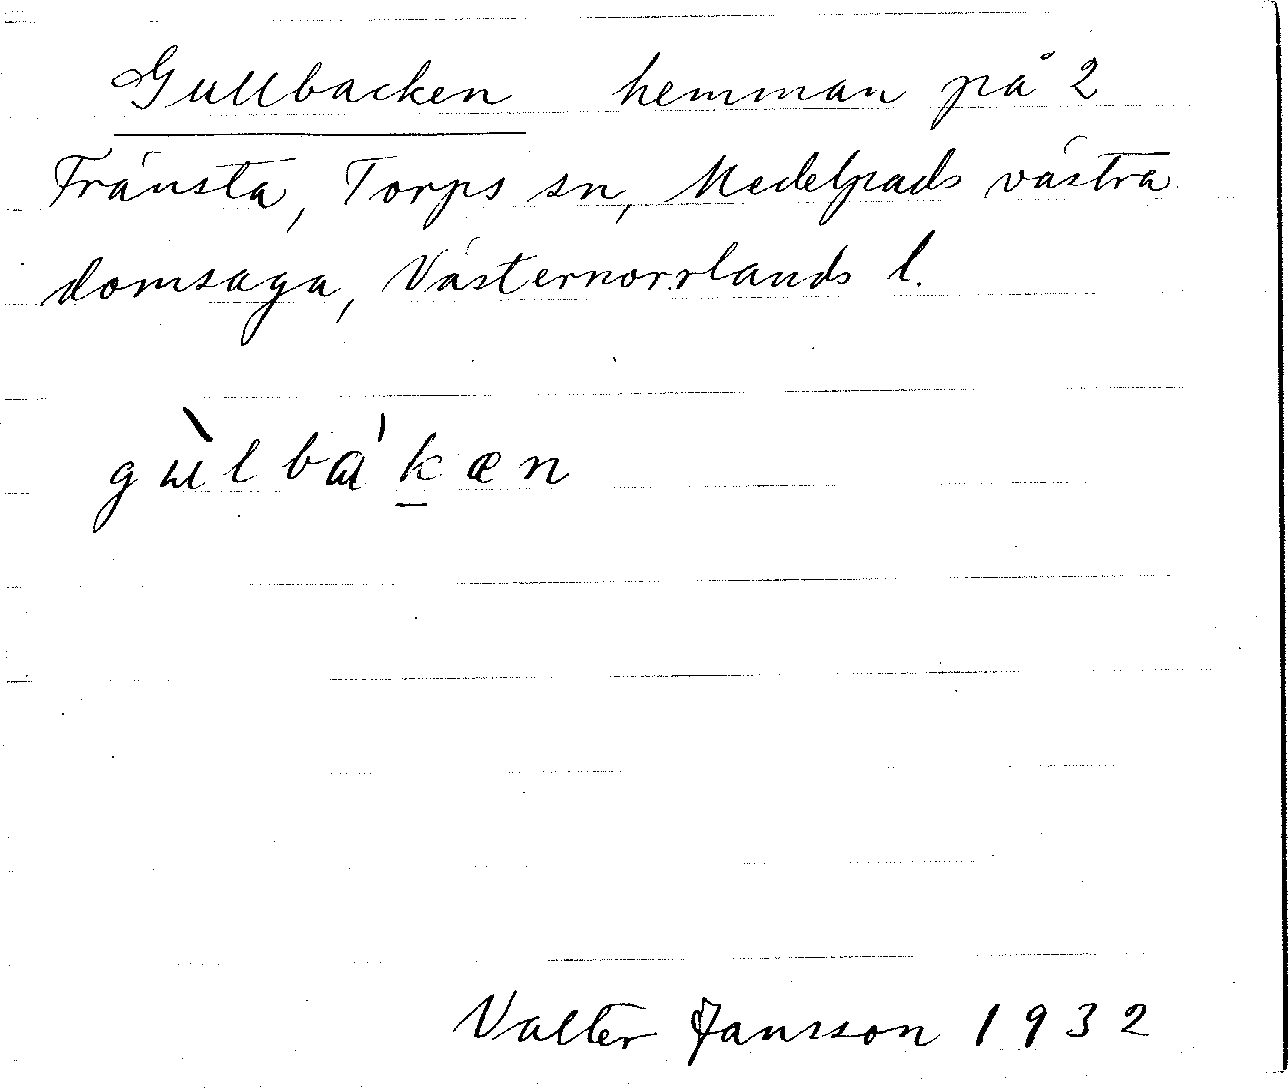 Gullbacken hemman på 2
Fränsta, Torps sn, Medelpads västra
domsaga, Västernorrlands l.
gùlbá'kæn
Valter Jansson 1932